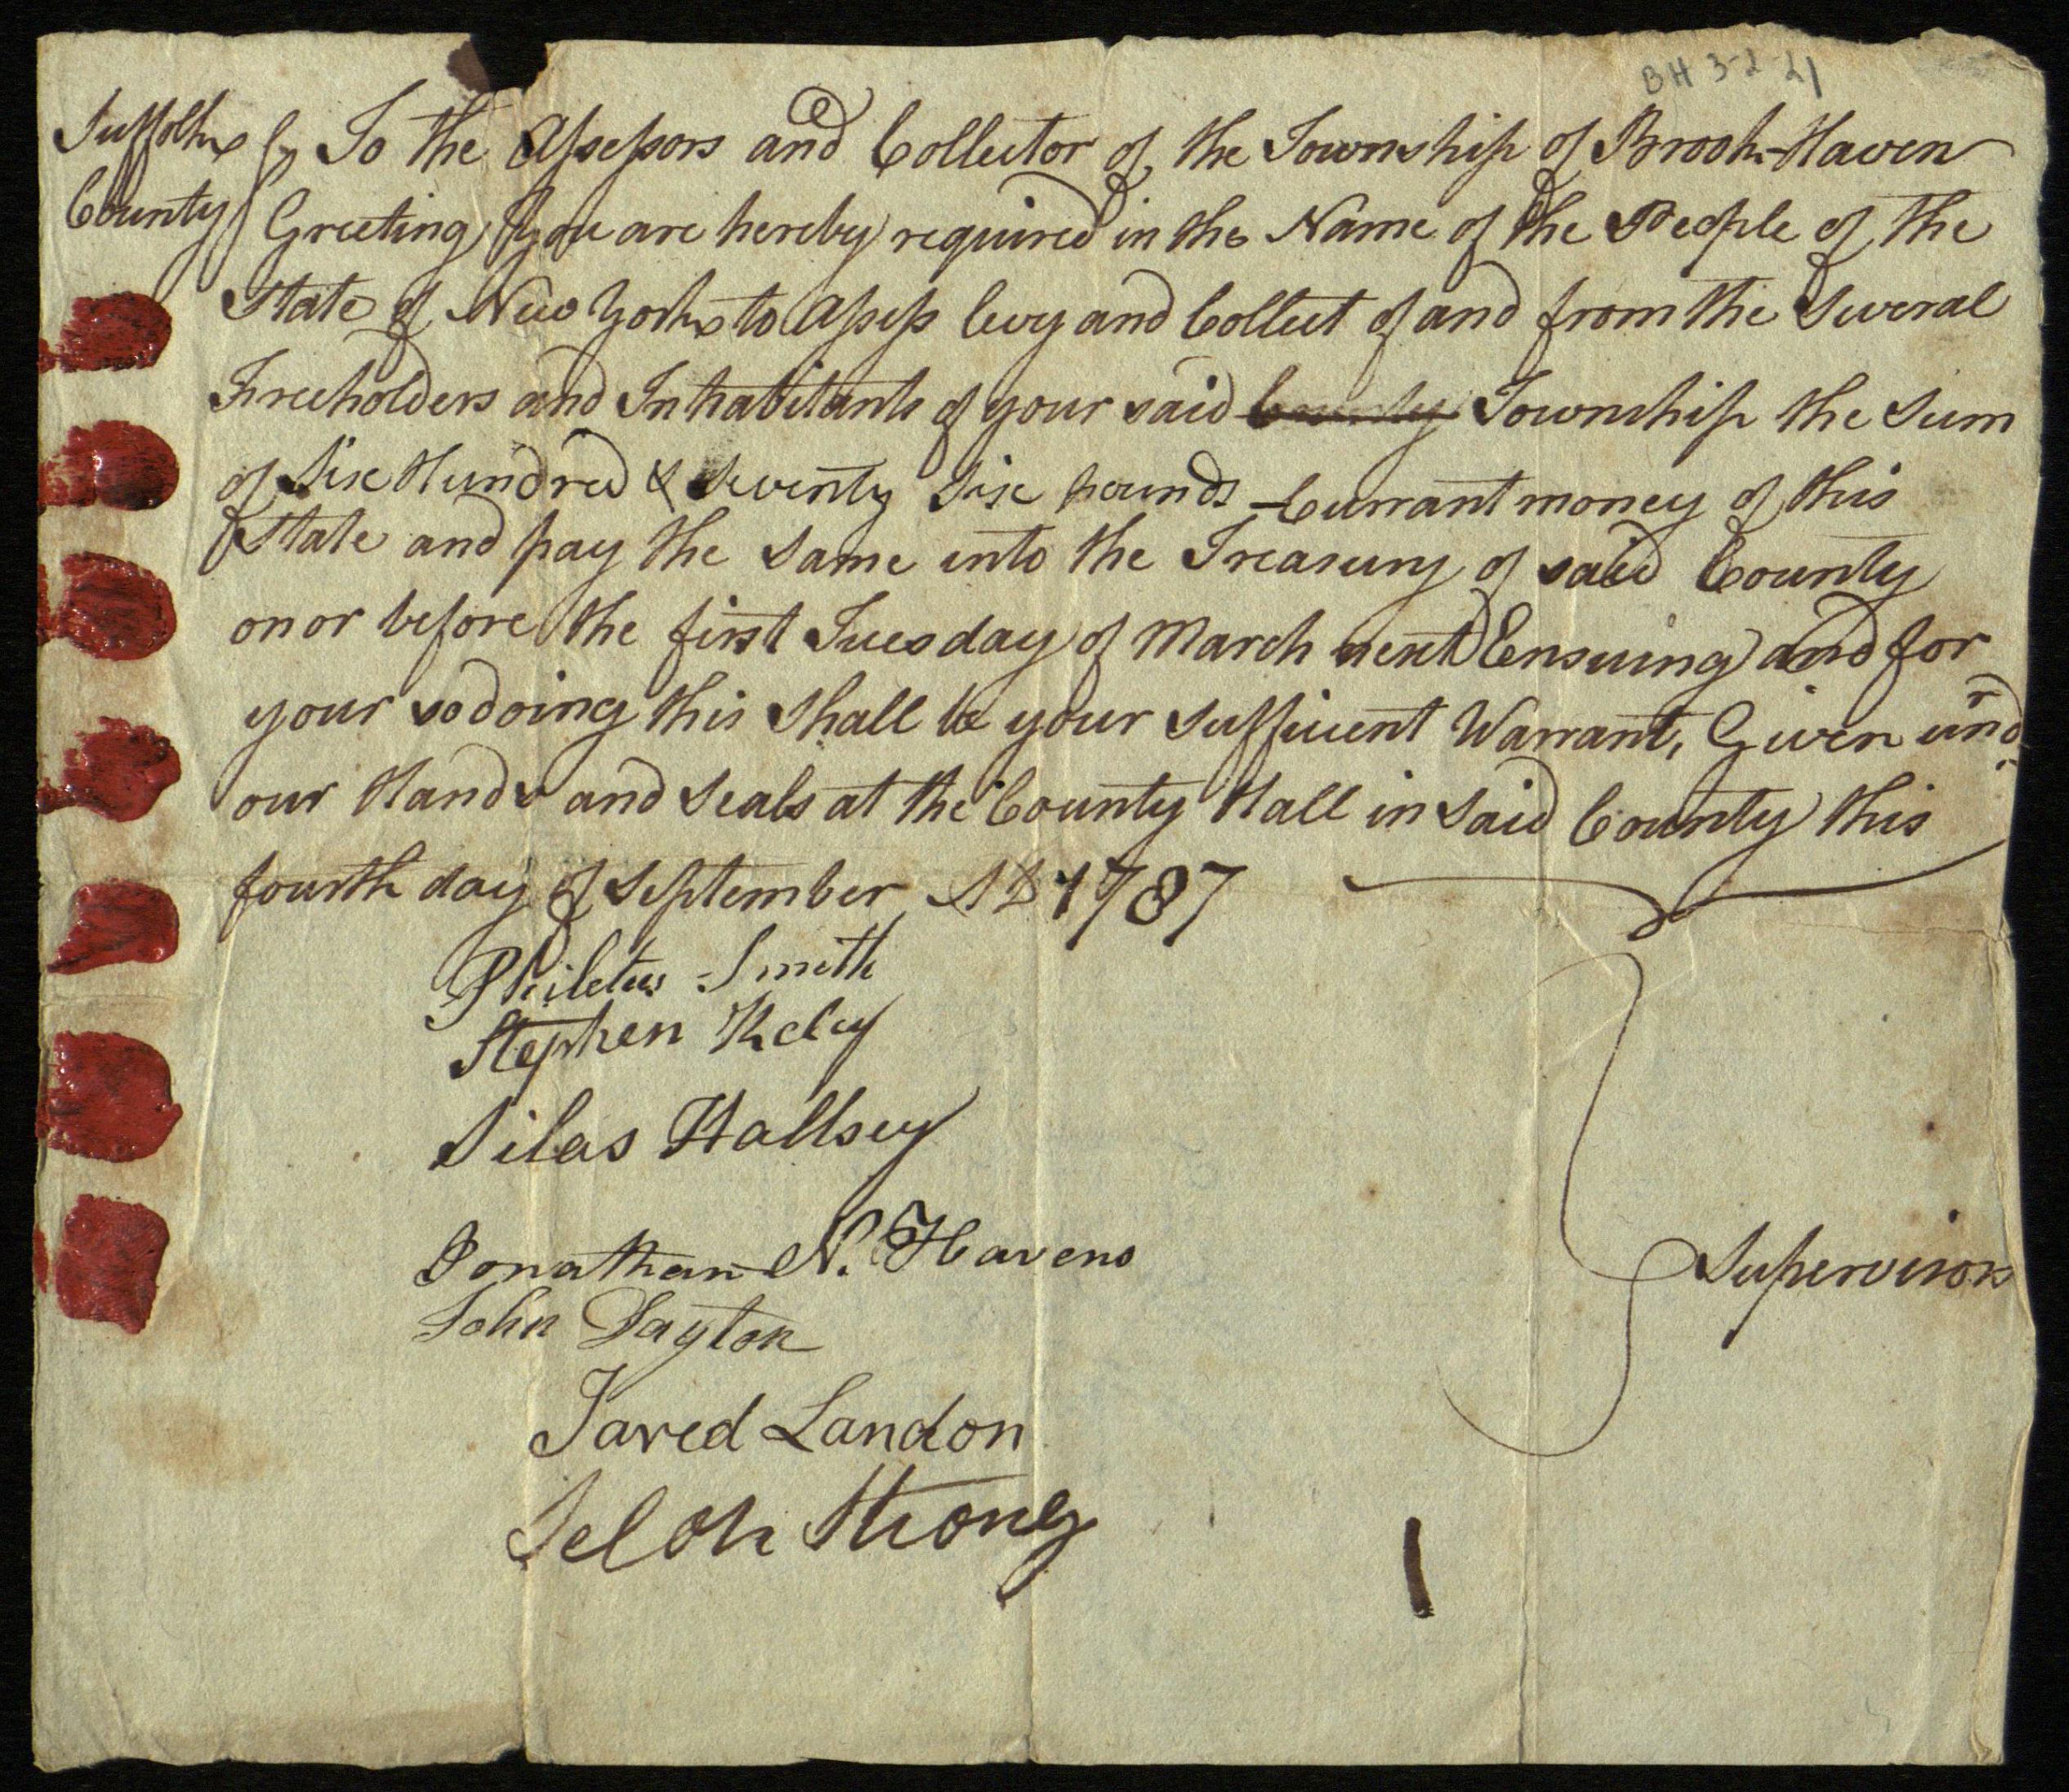 BH 3-2 21
Suffolk To the Assessors and Collector of the Township of Brook-Haven
County Greeting, You are hereby required in the Name of the People of the
State of New York to Assess levy and Collect of and from the Several
Freeholders and Inhabitants of your said County Township the Sum
of Six Hundred & Seventy Six pounds Currant money of this
State and pay the Same into the Treasury of said County
on or before the first Tuesday of March next Ensuing and for
your so doing this Shall be your Sufficient Warrant, Given undr
our Hands and Seals at the County Hall in Said County this
fourth day of September AD 1787
Philetus Smith
Stephen
Silas Hallsey
Jonathan N. Havens
Supervisors
John Dayton
Jared Landon
Selah Strong